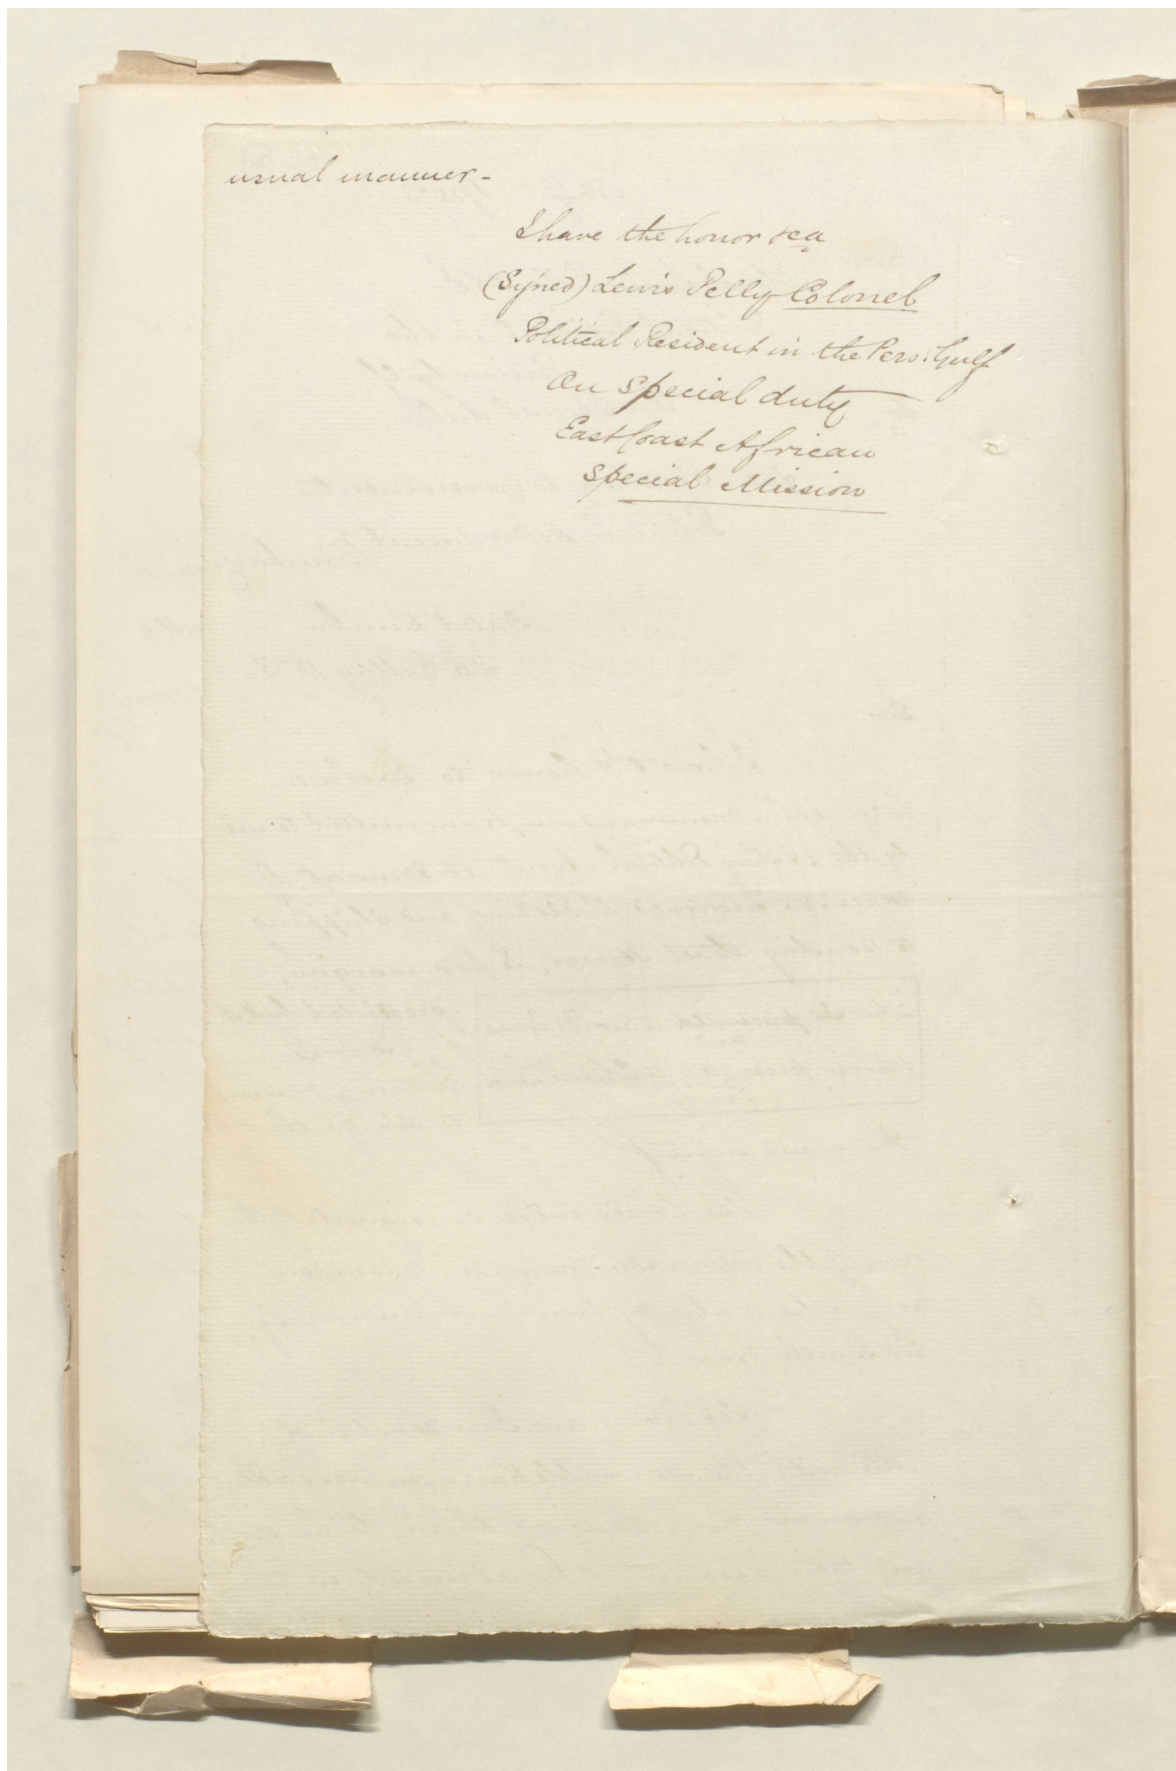 usual manner -
I have the honor &ca
(Syned) Lewis Pelly Colonel
Political Resident in the Pers: Gulf
On special duty
East Coast African
Special Mission